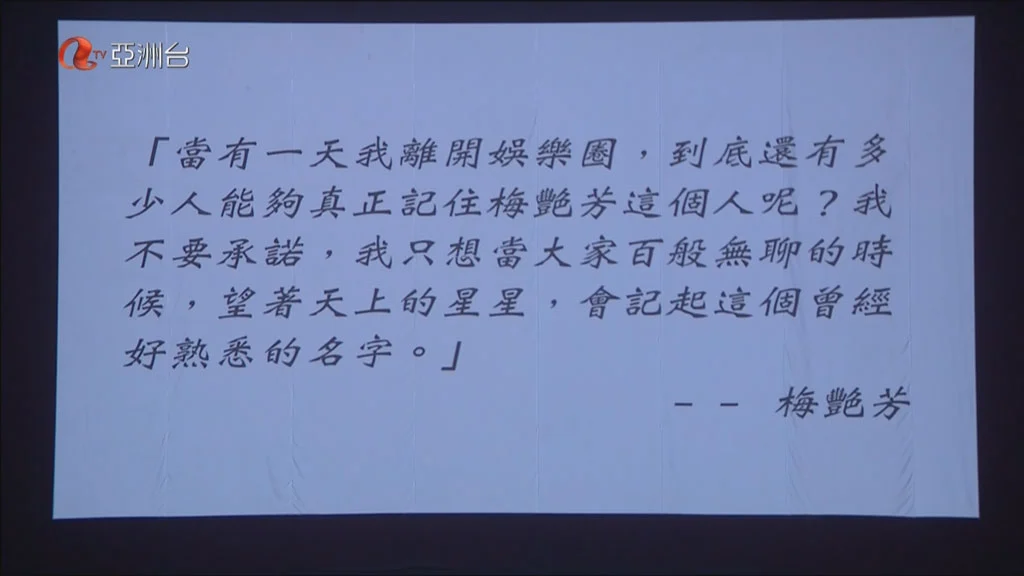 TV 亞洲台
「當有一天我離開娛樂圈，到底還有多
少人能夠真正記住梅艷芳這個人呢？我
不要承諾，我只想當大家百般無聊的時
候，望著天上的星星，會記起這個曾經
好熟悉的名字。」
－－ 梅艷芳